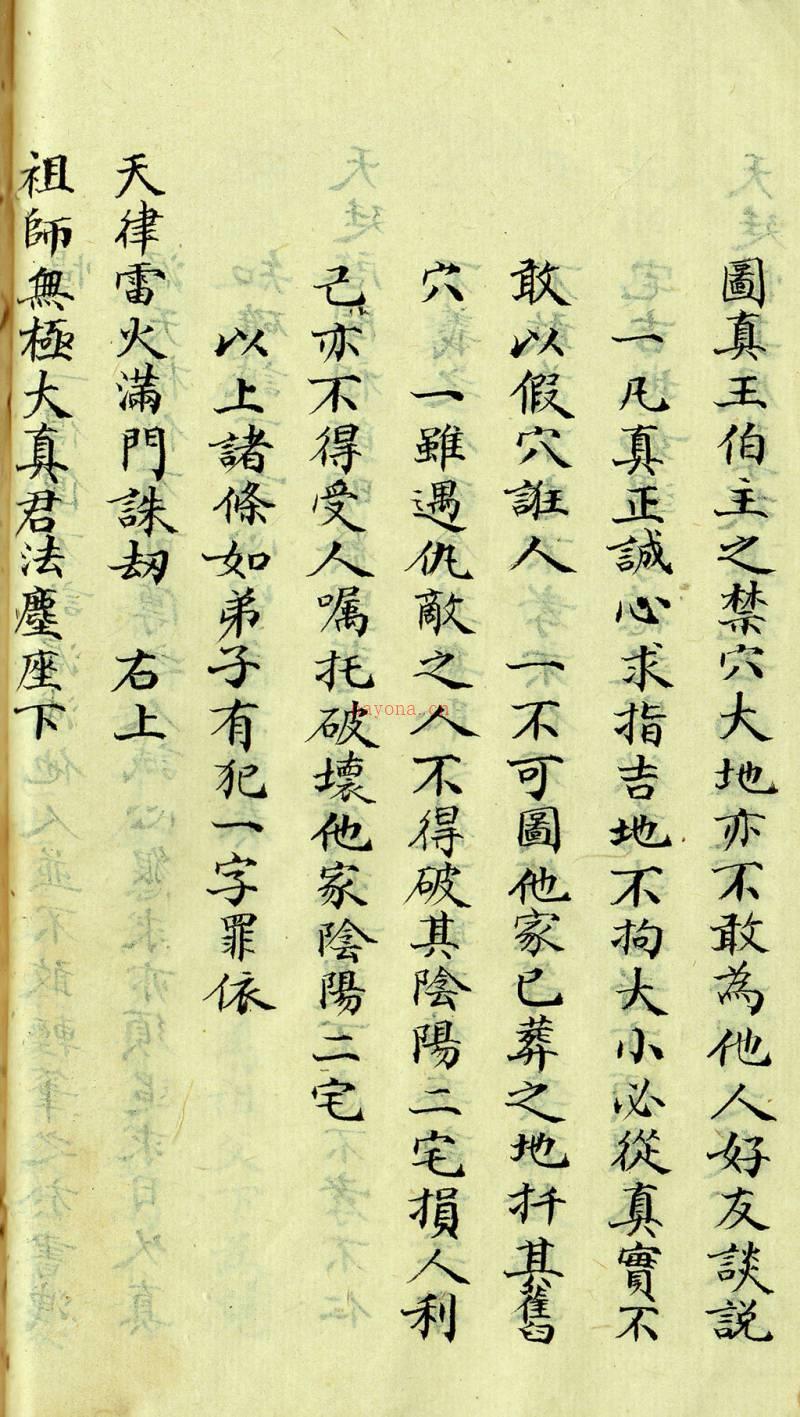 圖真王伯主之禁穴大地亦不敢為他人好友談説
一凡真正誠心求指吉地不拘大小必從真實不
敢以假穴誑人　一不可圖他家已葬之地扦其舊
穴　一雖遇仇敵之人不得破其陰陽二宅損人利
己亦不得受人嘱托破壞他家陰陽二宅
以上諸條如弟子有犯一字罪依
天律雷火滿門誅刼　右上
祖師無極大真君法塵座下